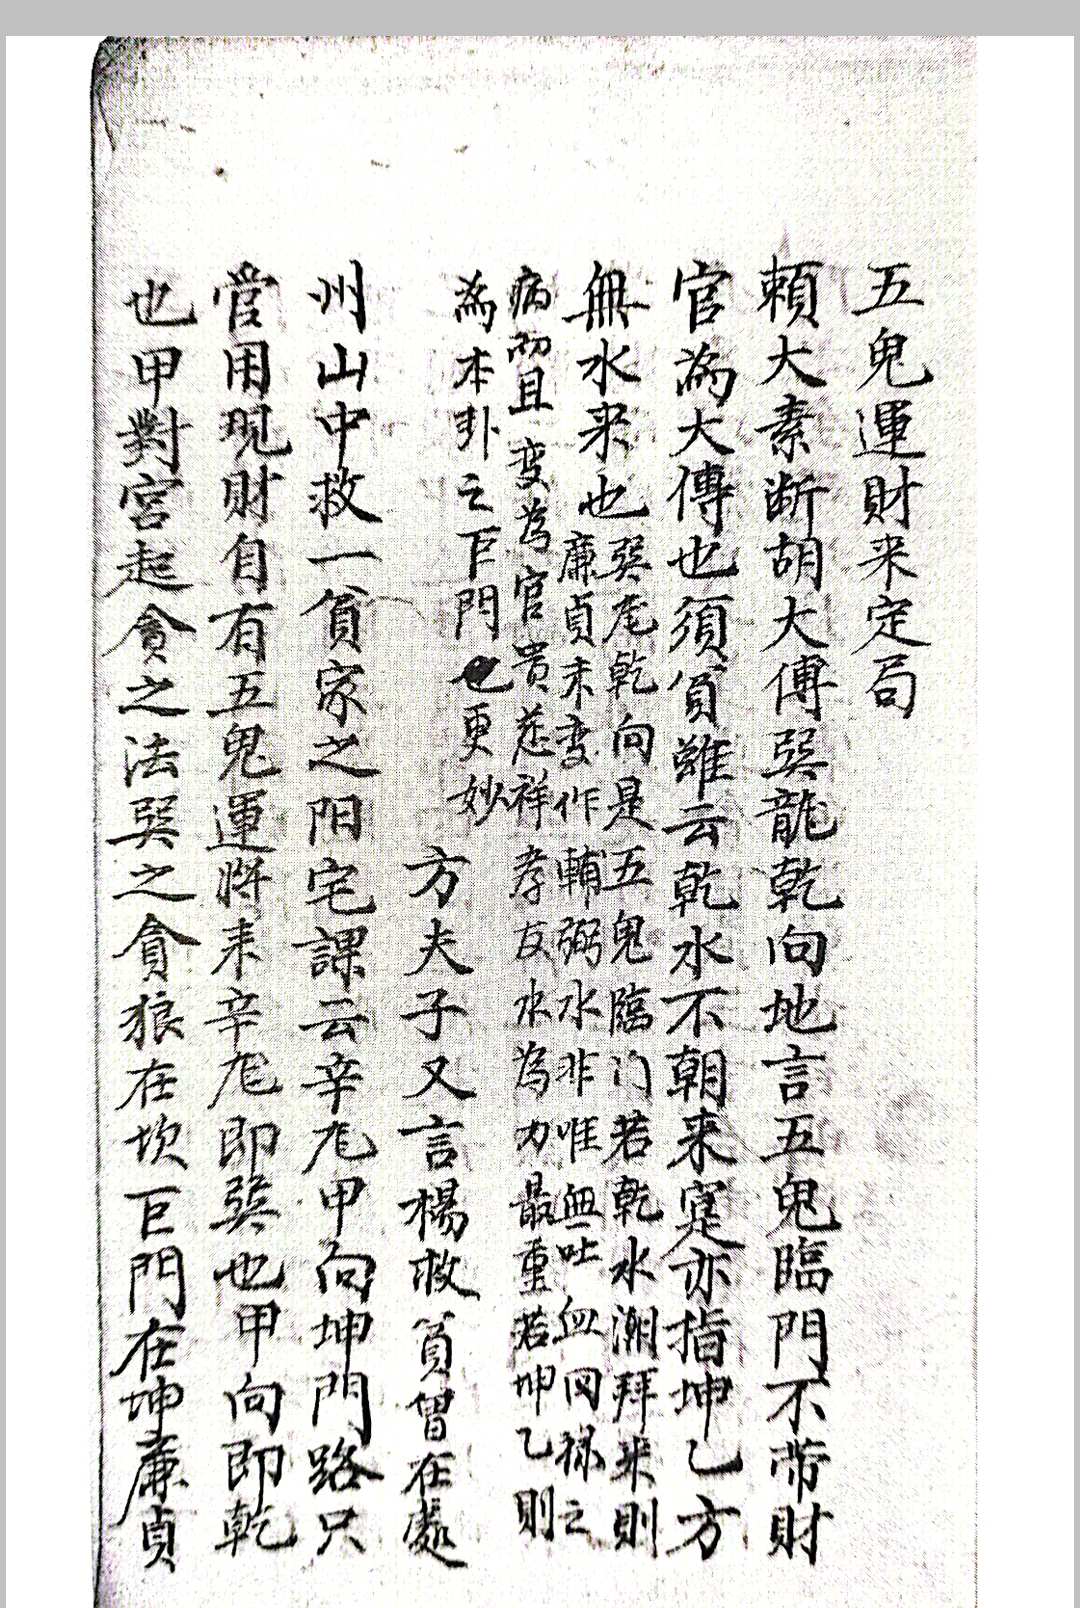 五鬼運財来定局
頼大素断胡大傅巽龍乾向地言五鬼臨門不帶財
官為大傳也須貧雖云乾水不朝来寔亦指坤乙方
無水来也
巽尨乾向是五鬼臨门若乾水潮拜来則
廉貞未变作輔弼水非唯血吐血囘祿之
病而且变為官贵慈祥孝友水為力最重若坤乙則
為本卦之巨門也更妙
方夫子又言楊救貧曽在處
州山中救一貧家之阳宅課云辛尨甲向坤門路只
當用現財自有五鬼運將来辛尨即巽也甲向即乾
也甲對宮起貪之法巽之貪狼在坎巨門在坤廉貞